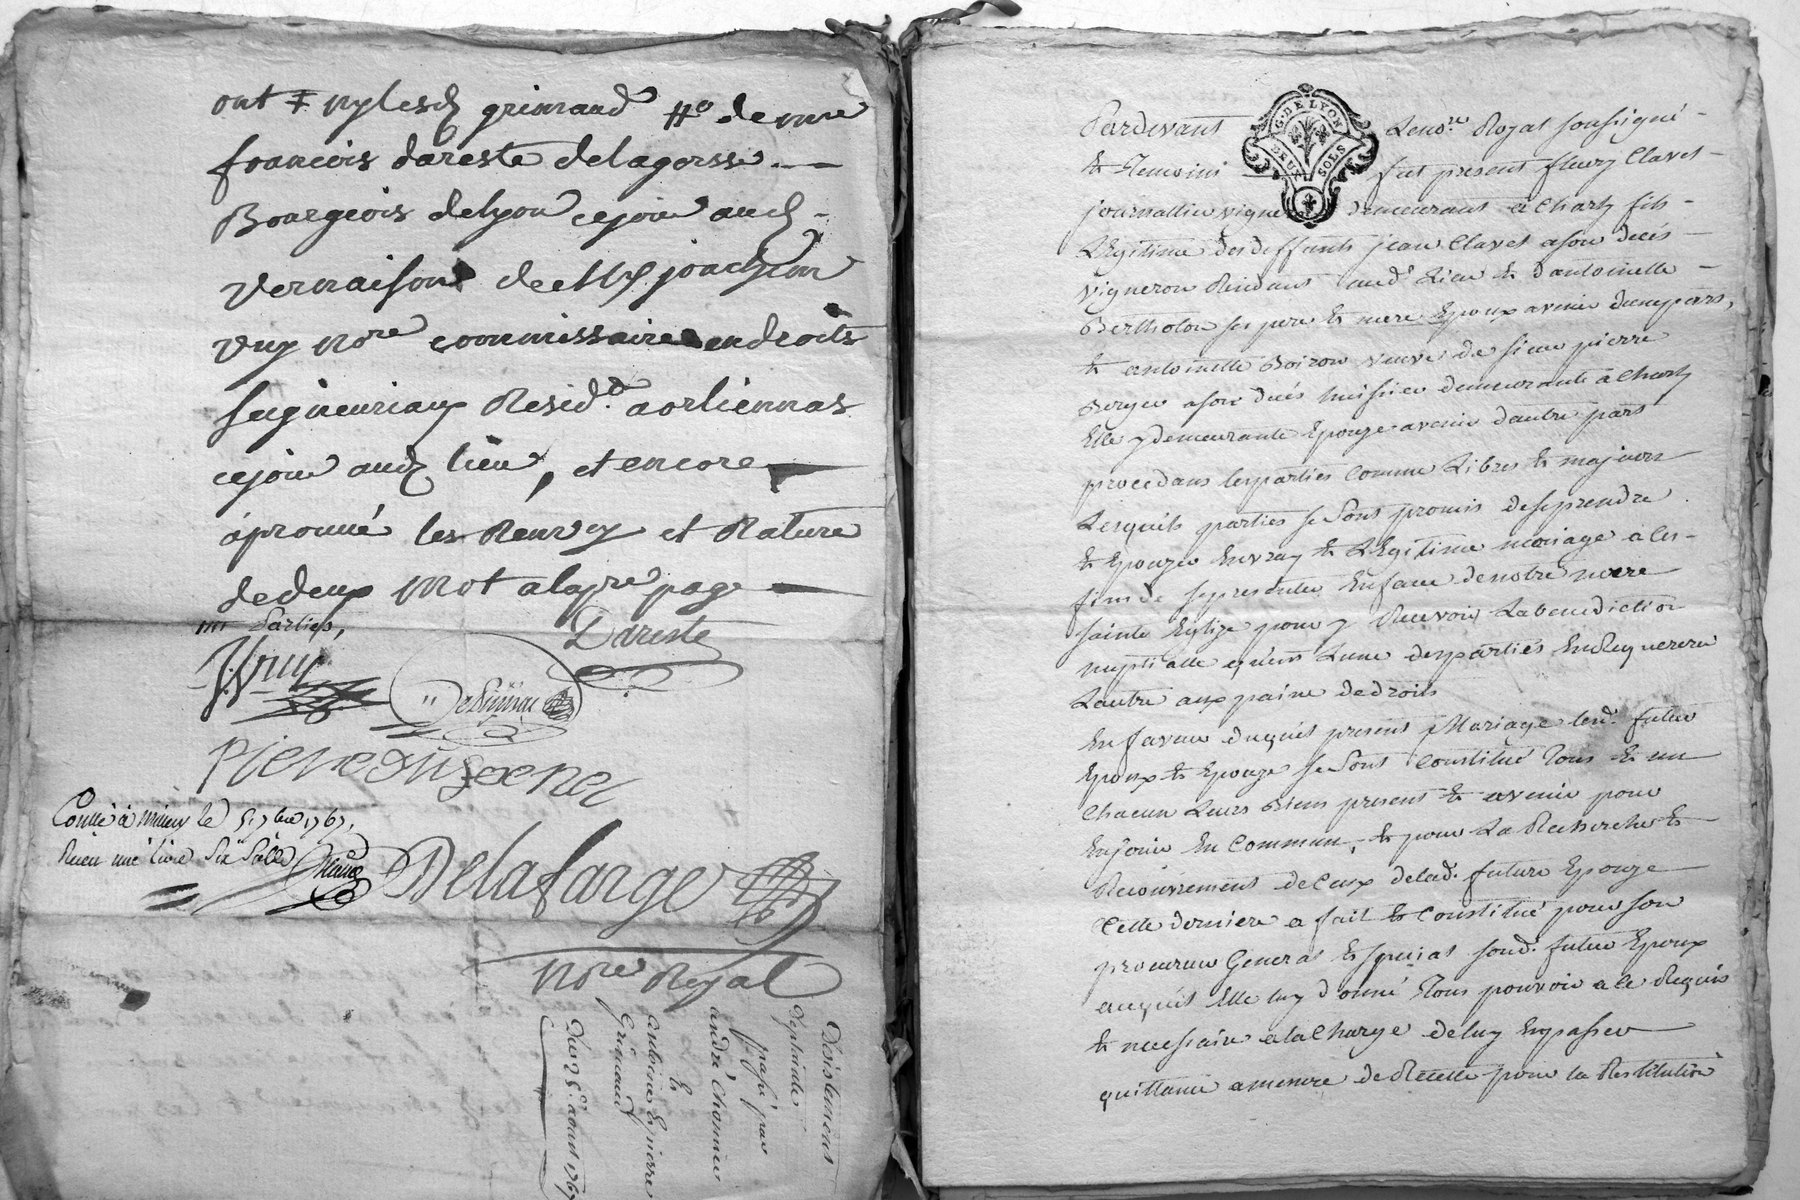 ont nylesd grimaud de mre
francois dareste delagorsse
Bourgeois delyon cejour aud
vernaison de Me joachim
vuy Nore commissaire en droits
seigneuriaux Resid.t a orliennas
cejour aud lieu, et encore
aprouvé les Renvoy et Rature
de deux mot a la pre page
Parties,
Dareste
Vuy
pierre
Conllé à le 5 7bre 1767,
Receu une livre Six Sols
Delafarge
Nore Royal
Désistement
deplainte
passé par
andré Chonier
&
antoine & pierre
Grimaud
Du 25e. aoust 1767
G. DE LYON
DEUX SOLS
Pardevant Le nore. Royal soussigné
& Temoins fut present fleury Clavel
journallier vigne demeurant à Charly fils
Legitime des deffunts jean Clavel a son deces
vigneron Residant aud. Lieu & d'antoinette
Bertholon ses pere & mere Epoux avenir d'une part,
& antoinette Boiron veuve de sieur pierre
Berger a son deces huissier demeurante à Charly
Elle y demeurante Epouze avenir d'autre part
procedans les parties comme Libres & majeurs
Lesquels parties se Sont promis de se prendre
& Epouzer En vray & Legitime mariage à Ces
fins de se presenter En face de notre mere
sainte Eglize pour y Recevoir La benediction
nuptialle qu'en L'une des parties En Requerera
L'autre aux paine de droits
En faveur duquel present Mariage Lesd. futur
Epoux & Epouze se Sont Constitué Tous & un
Chacun Leurs Biens present & avenir pour
En jouir En Commun, & pour La Recherche &
Recouvrement de Ceux de lad. future Epouze
Cette derniere a fait & Constitué pour son
procureur General & special sond. futur Epoux
auquel Elle luy donne Tous pouvoir a le Requis
& necessaire a la Charge de luy En passer
quittance a mesure de Recette pour la Restitution